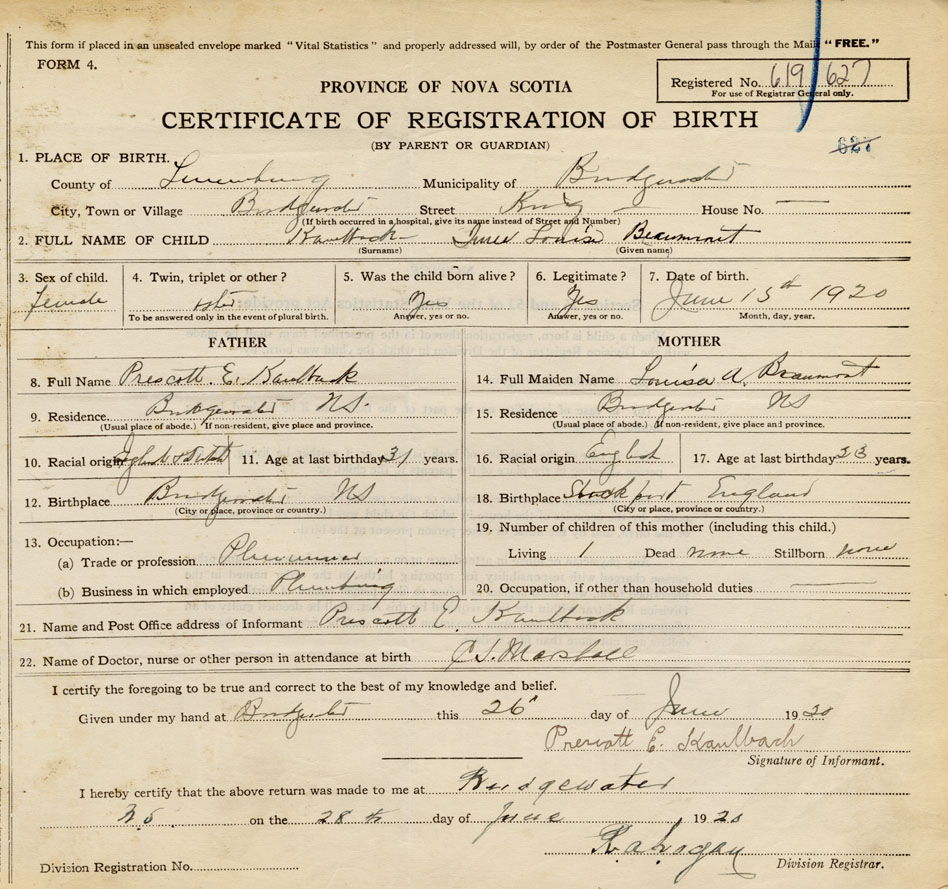 This form if placed in an unsealed envelope marked "Vital Statistics" and properly addressed will, by order of the Postmaster General pass through the Mail "FREE."
FORM 4.
Registered No. 619 627
For use of Registrar General only.
PROVINCE OF NOVA SCOTIA
CERTIFICATE OF REGISTRATION OF BIRTH
(BY PARENT OR GUARDIAN)
627
1. PLACE OF BIRTH.
County of Lunenburg Municipality of Bridgewater
City, Town or Village Bridgewater Street King House No. —
(If birth occurred in a hospital, give its name instead of Street and Number)
2. FULL NAME OF CHILD Kaulback June Louise Beaumont
(Surname) (Given name)
3. Sex of child. 4. Twin, triplet or other? 5. Was the child born alive? 6. Legitimate? 7. Date of birth.
female Yes Yes June 15th 1920
To be answered only in the event of plural birth. Answer, yes or no. Answer, yes or no. Month, day, year.
FATHER MOTHER
8. Full Name Prescott E. Kaulback 14. Full Maiden Name Louisa A. Beaumont
9. Residence. Bridgewater NS. 15. Residence Bridgewater NS
(Usual place of abode.) If non-resident, give place and province. (Usual place of abode.) If non-resident, give place and province.
10. Racial origin English & Dutch 11. Age at last birthday 31 years. 16. Racial origin English 17. Age at last birthday 23 years.
12. Birthplace Bridgewater NS 18. Birthplace Stockport England
(City or place, province or country.) (City or place, province or country.)
13. Occupation:— 19. Number of children of this mother (including this child.)
(a) Trade or profession Living 1 Dead none Stillborn none
(b) Business in which employed Plumbing 20. Occupation, if other than household duties —
21. Name and Post Office address of Informant Prescott E. Kaulback
22. Name of Doctor, nurse or other person in attendance at birth C.S. Marshall
I certify the foregoing to be true and correct to the best of my knowledge and belief.
Given under my hand at Bridgewater this 26" day of June 1920
Prescott E. Kaulbach
Signature of Informant.
I hereby certify that the above return was made to me at Bridgewater
NS on the 28th day of June 1920
Division Registration No. Division Registrar.